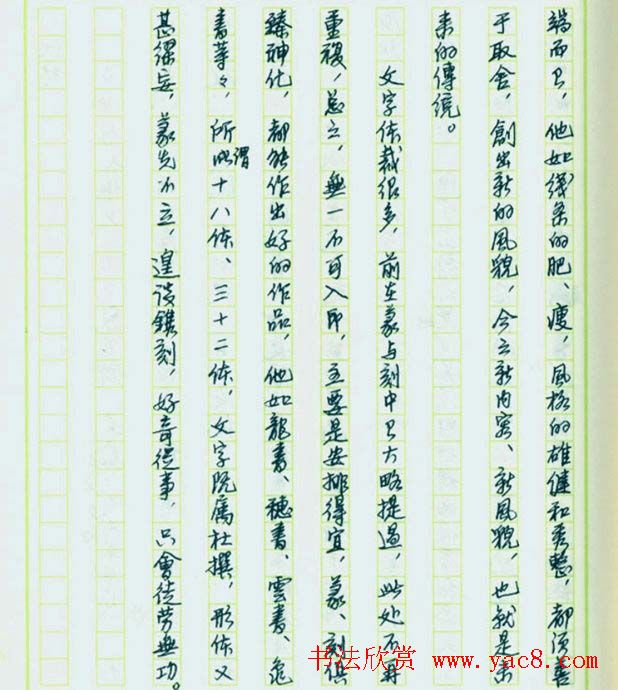 端而已，他如线条的肥、瘦，風格的雄健和秀整，都须善
于取舍，創出新的風貌，今之新内容、新風貌，也就是未
来的傳統。
文字体裁很多，前在篆与刻中已大略提過，此处不再
重複，总之，無一不可入印，主要是安排得宜，篆、刻俱
臻神化，都能作出好的作品，他如龍書、穗書、雲書、龟
書等々，所謂十八体、三十二体，文字既属杜撰，形体又
甚謬妄，篆先不立，遑谈鐫刻，好奇從事，只會徒劳無功。
书法欣赏 www.yac8.com